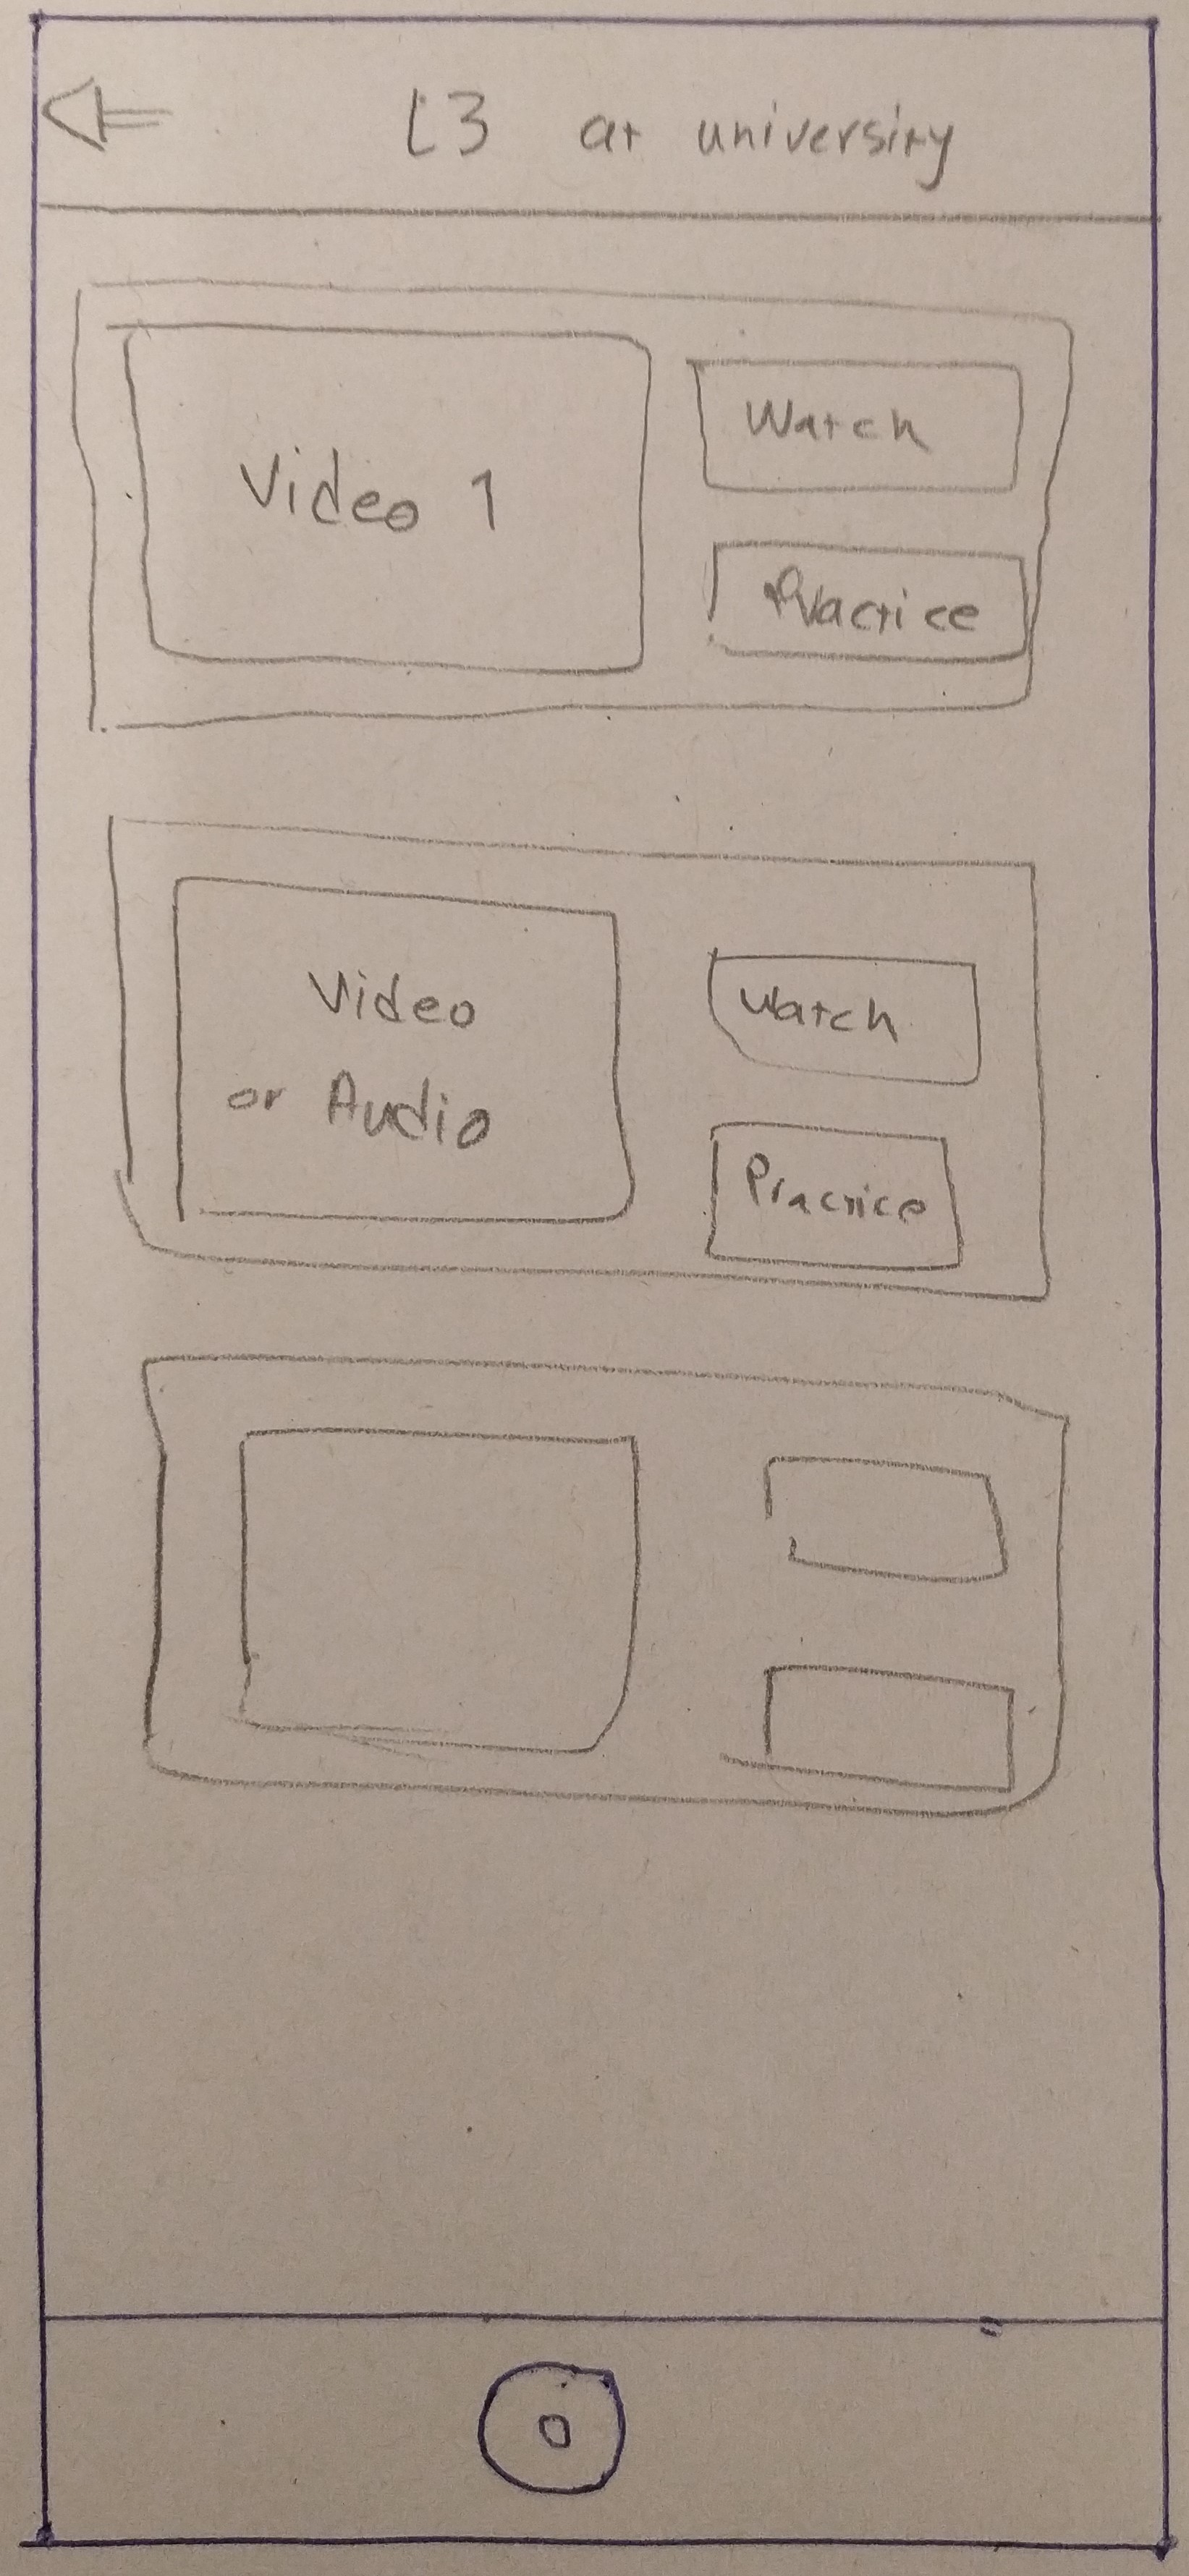 L3 at university
Video 1
Watch
Practice
Video
or Audio
Watch
Practice